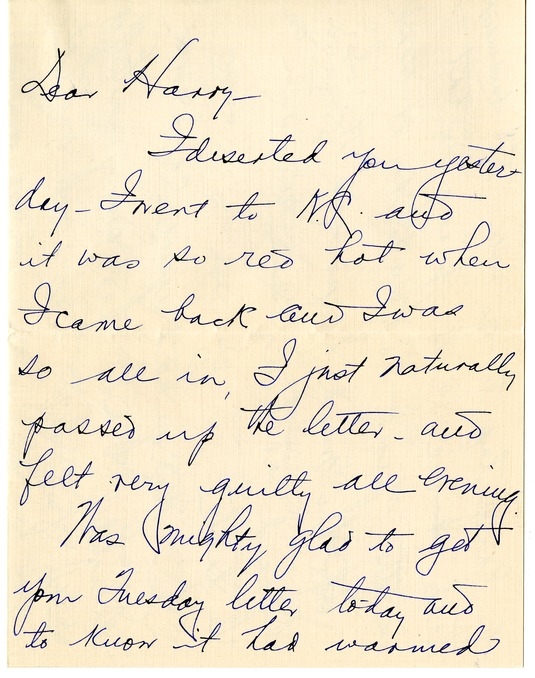 Dear Harry—
I deserted you yester-
day — I went to K.C. and
it was so red hot when
I came back and I was
so all in, I just naturally
passed up the letter - and
felt very guilty all evening.
Was mighty glad to get
your Tuesday letter today and
to know it had warmed